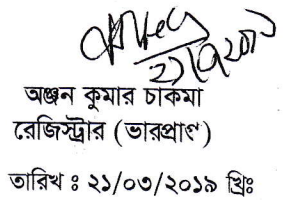 অঞ্জন কুমার চাকমা
রেজিস্ট্রার (ভারপ্রাপ্ত)
তারিখ ঃ ২১/০৩/২০১৯ খ্রিঃ